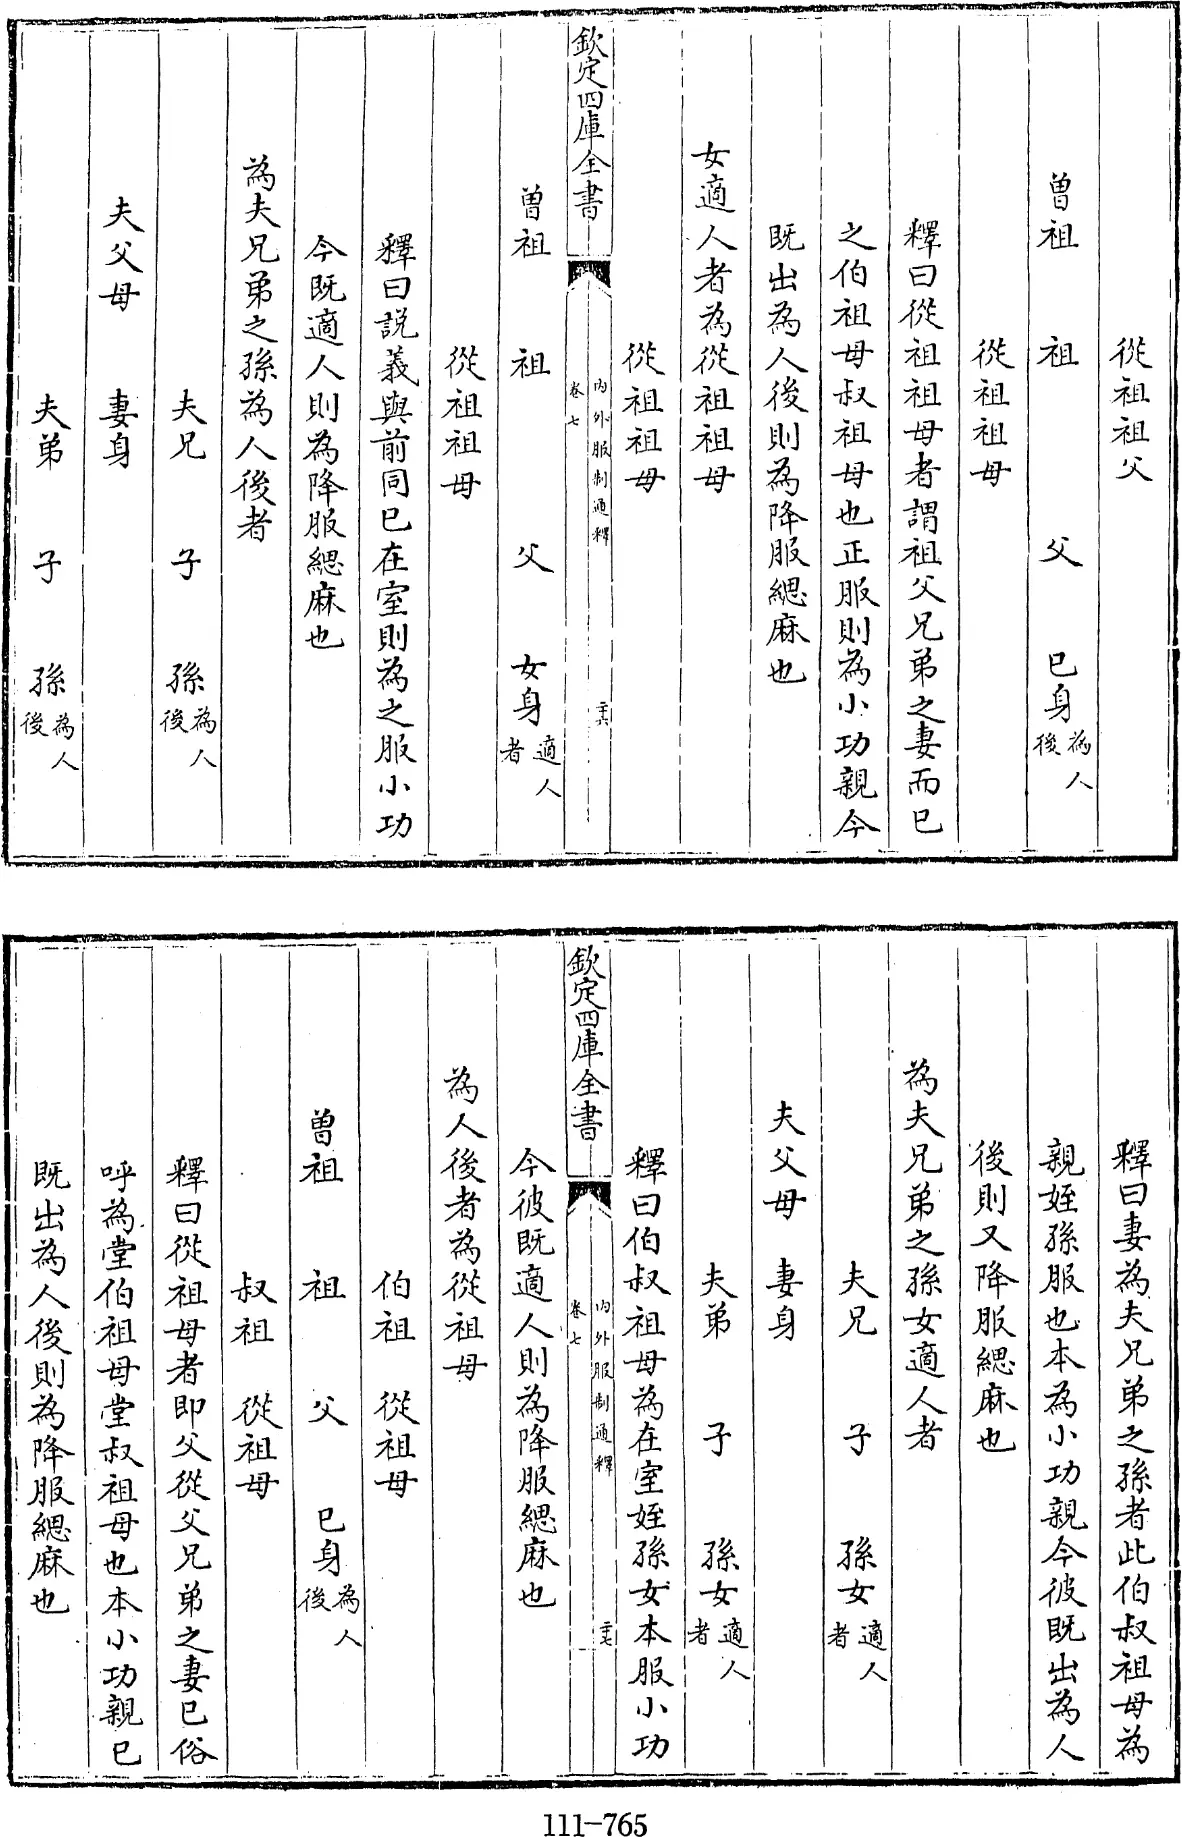 從祖祖父
曽祖　祖　父　已身為人後
從祖祖母
釋曰從祖祖母者謂祖父兄弟之妻而已
之伯祖母叔祖母也正服則為小功親今
既出為人後則為降服緦麻也
女適人者為從祖祖母
從祖祖母
欽定四庫全書
內外服制通釋
卷七
二十六
曽祖　祖　父　女身適人者
從祖祖母
釋曰說義與前同已在室則為之服小功
今既適人則為降服緦麻也
為夫兄弟之孫為人後者
夫兄　子　孫為人後
夫父母　妻身
夫弟　子　孫為人後
釋曰妻為夫兄弟之孫者此伯叔祖母為
親姪孫服也本為小功親今彼既出為人
後則又降服緦麻也
為夫兄弟之孫女適人者
夫兄　子　孫女適人者
夫父母　妻身
夫弟　子　孫女適人者
釋曰伯叔祖母為在室姪孫女本服小功
欽定四庫全書
內外服制通釋
卷七
二十七
今彼既適人則為降服緦麻也
為人後者為從祖母
伯祖　從祖母
曽祖　祖　父　已身為人後
叔祖　從祖母
釋曰從祖母者即父從父兄弟之妻已俗
呼為堂伯祖母堂叔祖母也本小功親已
既出為人後則為降服緦麻也
111-765